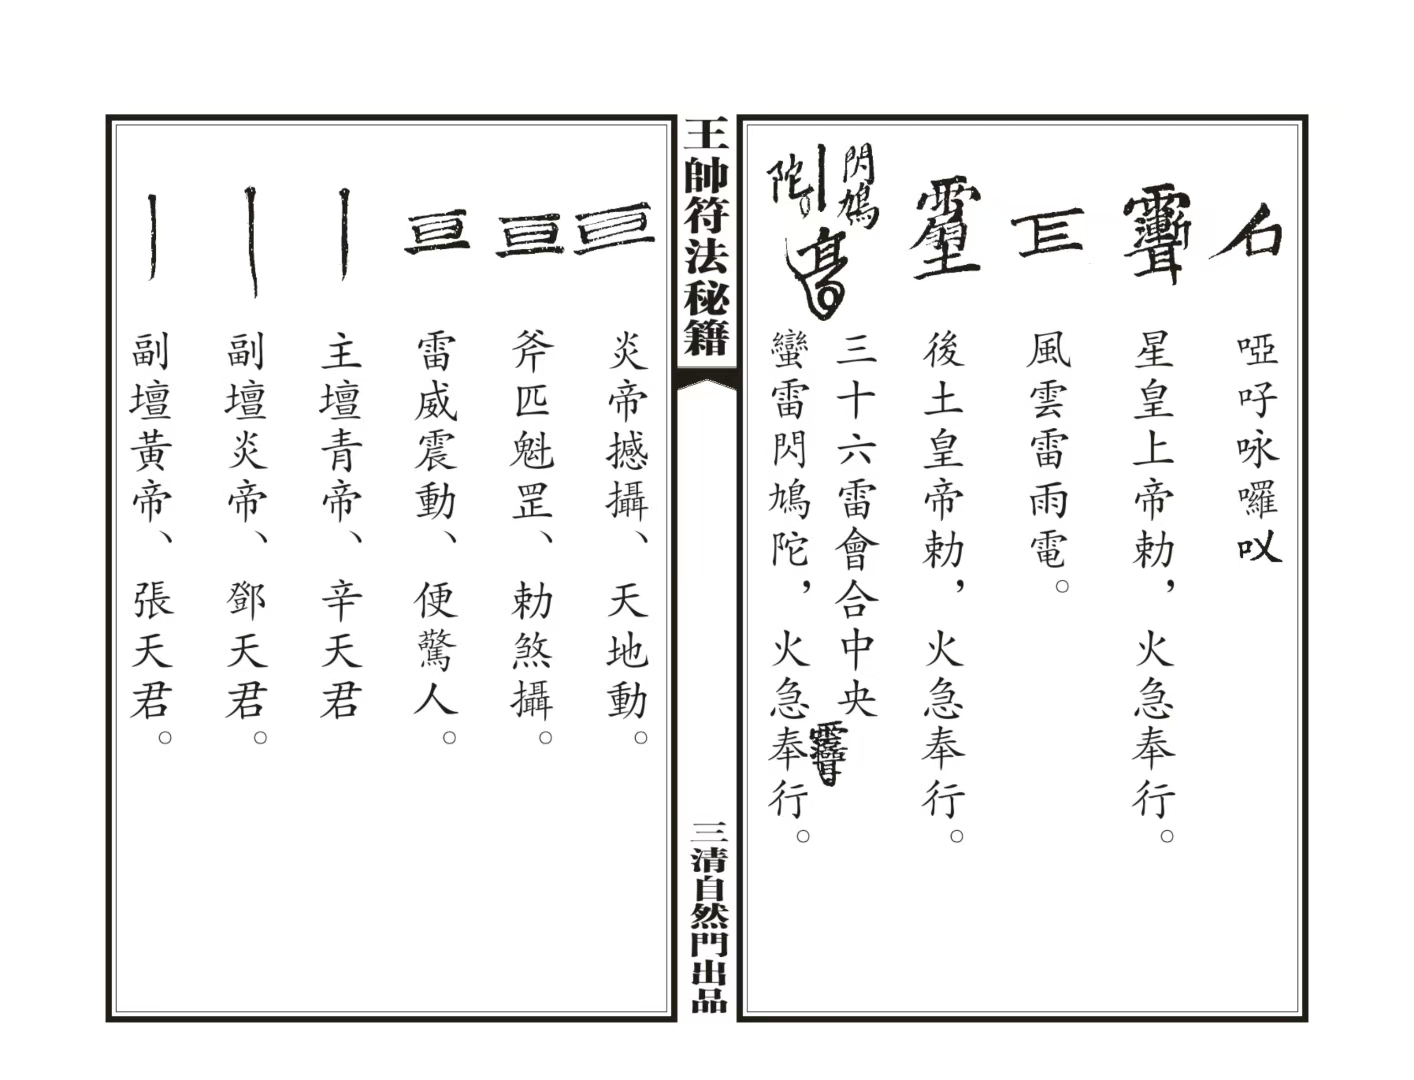 啞吇咏囉㕥
星皇上帝勅，火急奉行。
風雲雷雨電。
後土皇帝勅，火急奉行。
閃鳩
陀
三十六雷會合中央
蠻雷閃鳩陀，火急奉行。
王帥符法秘籍
三清自然門出品
炎帝撼攝、天地動。
斧匹魁罡、勅煞攝。
雷威震動、便驚人。
主壇青帝、辛天君
副壇炎帝、鄧天君。
副壇黃帝、張天君。